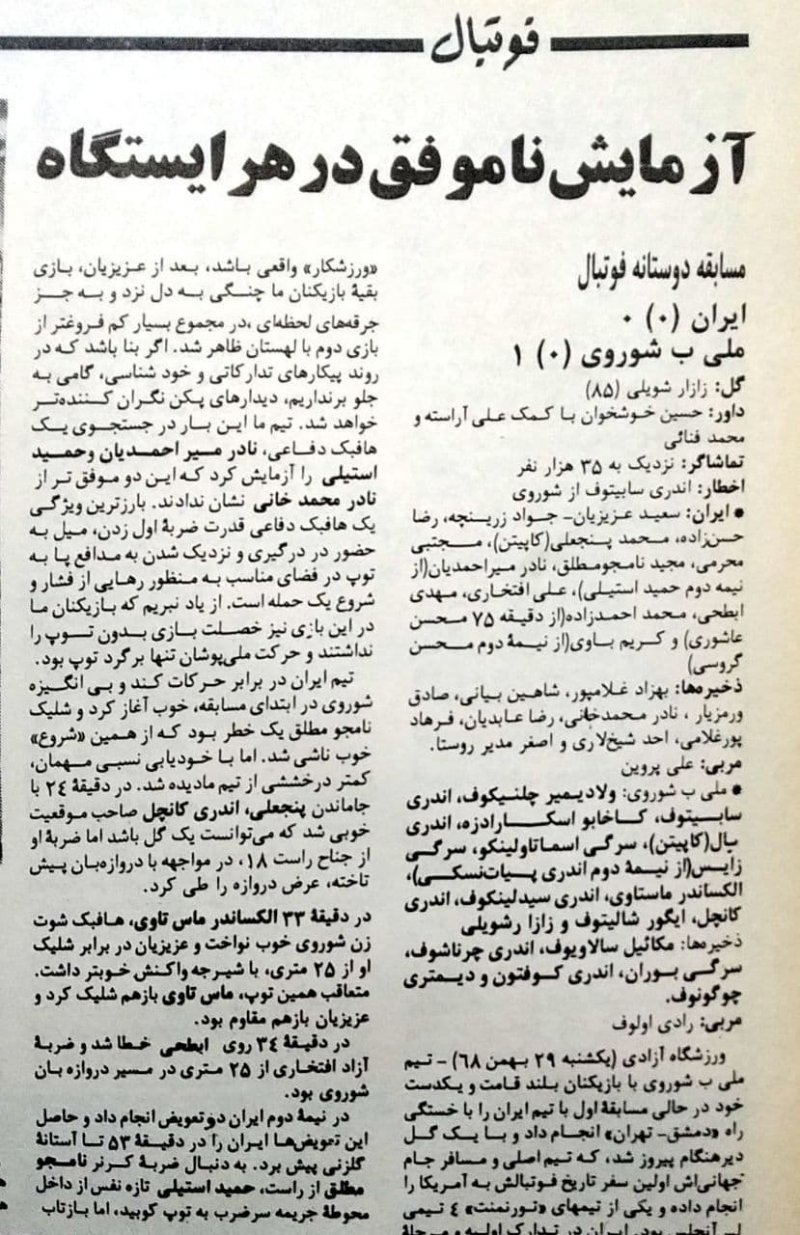 فوتبال
آزمایش ناموفق در هر ایستگاه
مسابقه دوستانه فوتبال
ایران (۰) ۰
ملی ب شوروی (۰) ۱
گل: زازار شویلی (۸۵)
داور: حسین خوشخوان با کمک علی آراسته و
محمد فنائی
تماشاگر: نزدیک به ۳۵ هزار نفر
اخطار: اندری سابیتوف از شوروی
● ایران: سعید عزیزیان- جواد زرینچه، رضا
حسن‌زاده، محمد پنجعلی(کاپیتن)، مجتبی
محرمی، مجید نامجومطلق، نادر میراحمدیان(از
نیمه دوم حمید استیلی)، علی افتخاری، مهدی
ابطحی، محمد احمدزاده(از دقیقه ۷۵ محسن
عاشوری) و کریم باوی(از نیمهٔ دوم محسن
گروسی)
ذخیره‌ها: بهزاد غلامپور، شاهین بیانی، صادق
ورمزیار، نادر محمدخانی، رضا عابدیان، فرهاد
پورغلامی، احد شیخ‌لاری و اصغر مدیر روستا.
مربی: علی پروین
● ملی ب شوروی: ولادیمیر چلنیکوف، اندری
سابیتوف، کاخابو اسکارادزه، اندری
بال(کاپیتن)، سرگی اسماتاولینکو، سرگی
زایس(از نیمهٔ دوم اندری پیات‌نسکی)،
الکساندر ماستاوی، اندری سیدلینکوف، اندری
کانچل، ایگور شالیتوف و زازا رشویلی
ذخیره‌ها: مکائیل سالاویوف، اندری چرناشوف،
سرگی بوران، اندری کوفتون و دیمتری
چوگونوف.
مربی: رادی اولوف
ورزشگاه آزادی (یکشنبه ۲۹ بهمن ۶۸) - تیم
ملی ب شوروی با بازیکنان بلند قامت و یکدست
خود در حالی مسابقهٔ اول با تیم ایران را با خستگی
راه «دمشق- تهران» انجام داد و با یک گل
دیرهنگام پیروز شد، که تیم اصلی و مسافر جام
جهانی‌اش اولین سفر تاریخ فوتبالش به آمریکا را
انجام داده و یکی از تیمهای «تورنمنت» ۴ تیمی
لس آنجلس بود. ایران در تدارک اولیه و مرحلهٔ
«ورزشکار» واقعی باشد، بعد از عزیزیان، بازی
بقیهٔ بازیکنان ما چنگی به دل نزد و به جز
جرقه‌های لحظه‌ای، در مجموع بسیار کم فروغتر از
بازی دوم با لهستان ظاهر شد. اگر بنا باشد که در
روند پیکارهای تدارکاتی و خود شناسی، گامی به
جلو برنداریم، دیدارهای پکن نگران کننده‌تر
خواهد شد. تیم ما این بار در جستجوی یک
هافبک دفاعی، نادر میر احمدیان وحمید
استیلی را آزمایش کرد که این دو موفق تر از
نادر محمد خانی نشان ندادند. بارزترین ویژگی
یک هافبک دفاعی قدرت ضربهٔ اول زدن، میل به
حضور در درگیری و نزدیک شدن به مدافع پا به
توپ در فضای مناسب به منظور رهایی از فشار و
شروع یک حمله است. از یاد نبریم که بازیکنان ما
در این بازی نیز خصلت بازی بدون توپ را
نداشتند و حرکت ملی‌پوشان تنها برگرد توپ بود.
تیم ایران در برابر حرکات کند و بی انگیزه
شوروی در ابتدای مسابقه، خوب آغاز کرد و شلیک
نامجو مطلق یک خطر بود که از همین «شروع»
خوب ناشی شد. اما با خودیابی نسبی مهمان،
کمتر درخششی از تیم مادیده شد. در دقیقهٔ ۲۴ با
جاماندن پنجعلی، اندری کانچل صاحب موقعیت
خوبی شد که می‌توانست یک گل باشد اما ضربهٔ او
از جناح راست ۱۸، در مواجهه با دروازه‌بان پیش
تاخته، عرض دروازه را طی کرد.
در دقیقهٔ ۳۳ الکساندر ماس تاوی، هافبک شوت
زن شوروی خوب نواخت و عزیزیان در برابر شلیک
او از ۲۵ متری، با شیرجه واکنش خوبتر داشت.
متعاقب همین توپ، ماس تاوی بازهم شلیک کرد و
عزیزیان بازهم مقاوم بود.
در دقیقهٔ ۳۴ روی ابطحی خطا شد و ضربهٔ
آزاد افتخاری از ۲۵ متری در مسیر دروازه بان
شوروی بود.
در نیمهٔ دوم ایران دوتعویض انجام داد و حاصل
این تعویض‌ها ایران را در دقیقهٔ ۵۳ تا آستانهٔ
گلزنی پیش برد. به دنبال ضربهٔ کرنر نامجو
مطلق از راست، حمید استیلی تازه نفس از داخل
محوطهٔ جریمه سرضرب به توپ کوبید، اما بازتاب